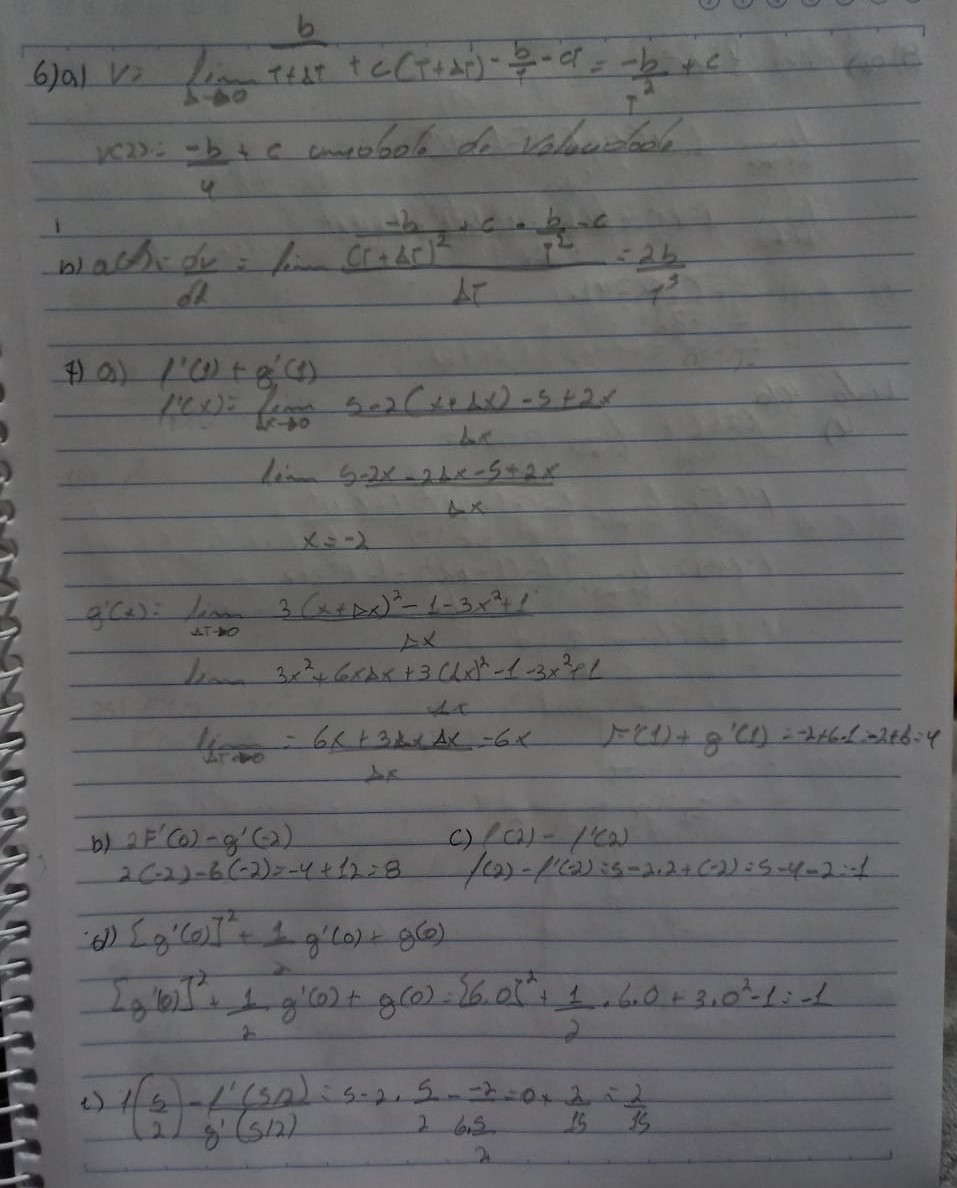 b
6) a) V= lim T+ΔT + c(T+ΔT) - b/T - cT = -b/T² + c
Δ→0
V(2) = -b/4 + c unidade de velocidade
b) a(t) = dv/dt = lim (-b/(T+ΔT)² + c + b/T² - c)/ΔT = 2b/T³
7) a) f'(1) + g'(1)
f'(x) = lim Δx→0 (5-2(x+Δx)-5+2x)/Δx
lim (5-2x-2Δx-5+2x)/Δx
x = -2
g'(x) = lim ΔT→0 (3(x+Δx)²-1-3x²+1)/Δx
lim (3x²+6xΔx+3(Δx)²-1-3x²+1)/Δx
lim ΔT→0 = (6x+3Δx Δx)/Δx = 6x F'(1) + g'(1) = -2+6.1 = -2+6 = 4
b) 2F'(0) - g'(-2) c) f(2) - f'(2)
2(-2)-6(-2) = -4+12 = 8 f(2) - f'(-2) = 5-2.2+(-2) = 5-4-2 = -1
d) [g'(0)]² + 1/2 g'(0) + g(0)
[g'(0)]² + 1/2 g'(0) + g(0) = [6.0]² + 1/2 . 6.0 + 3.0²-1 = -1
e) f(5/2) - f'(5/2)/g'(5/2) = 5-2. 5/2 - -2/(6.5/2) = 0 + 2/15 = 2/15